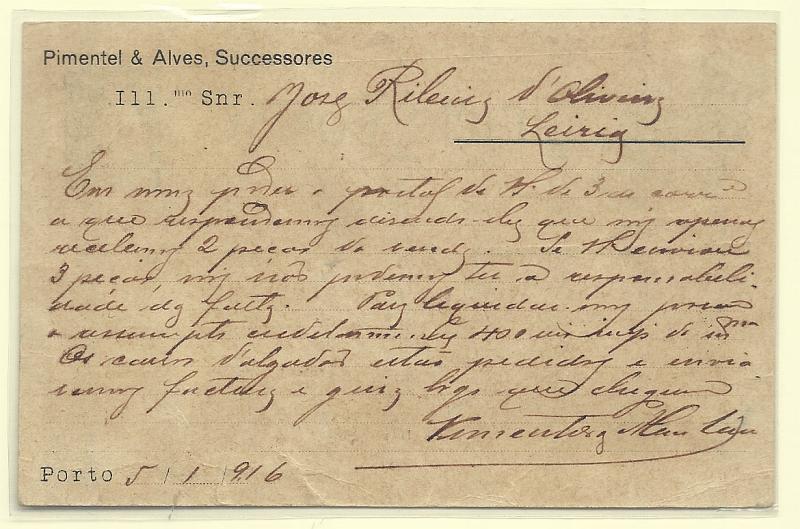 Pimentel & Alves, Successores
Ill.mo Snr. José Ribeiro d'Oliveira
Leiria
Em nosso poder o postal de V. de 3 do corre
a que respondemos dizendo-lhe que nós apenas
recebemos 2 peças de renda. Se V. enviou
3 peças, nós não podemos ter a responsabili-
dade da falta. Para liquidar
o assumpto 400
Os d'algodão estão pedidos e envia
remos factura e guia logo que cheguem
Pimentel & Alves
Porto 5/1/916